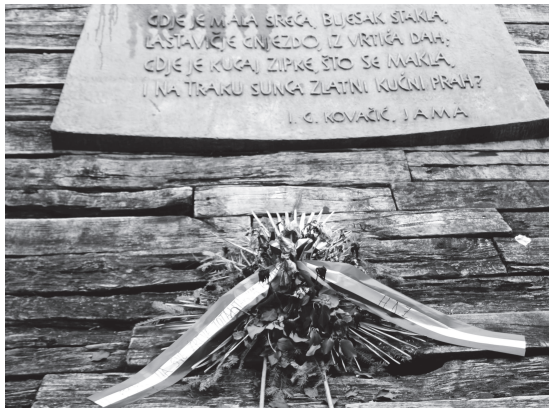 GDJE JE MALA SREĆA, BLJESAK STAKLA,
LASTAVIČJE GNIJEZDO, IZ VRTIĆA DAH;
GDJE JE KUCAJ ZIPKE, ŠTO SE MAKLA,
I NA TRAKU SUNCA ZLATNI KUĆNI PRAH?
I. G. KOVAČIĆ, JAMA